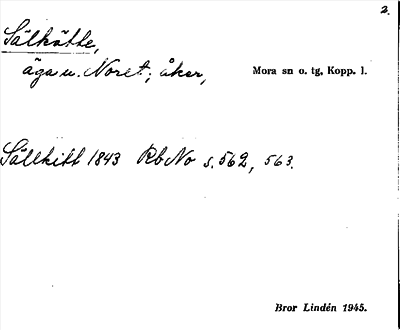 2.
Sälkätte,
äga u. Noret; åker,
Mora sn o. tg, Kopp. l.
Sällkitt 1843 RbNo s. 562, 563.
Bror Lindén 1945.